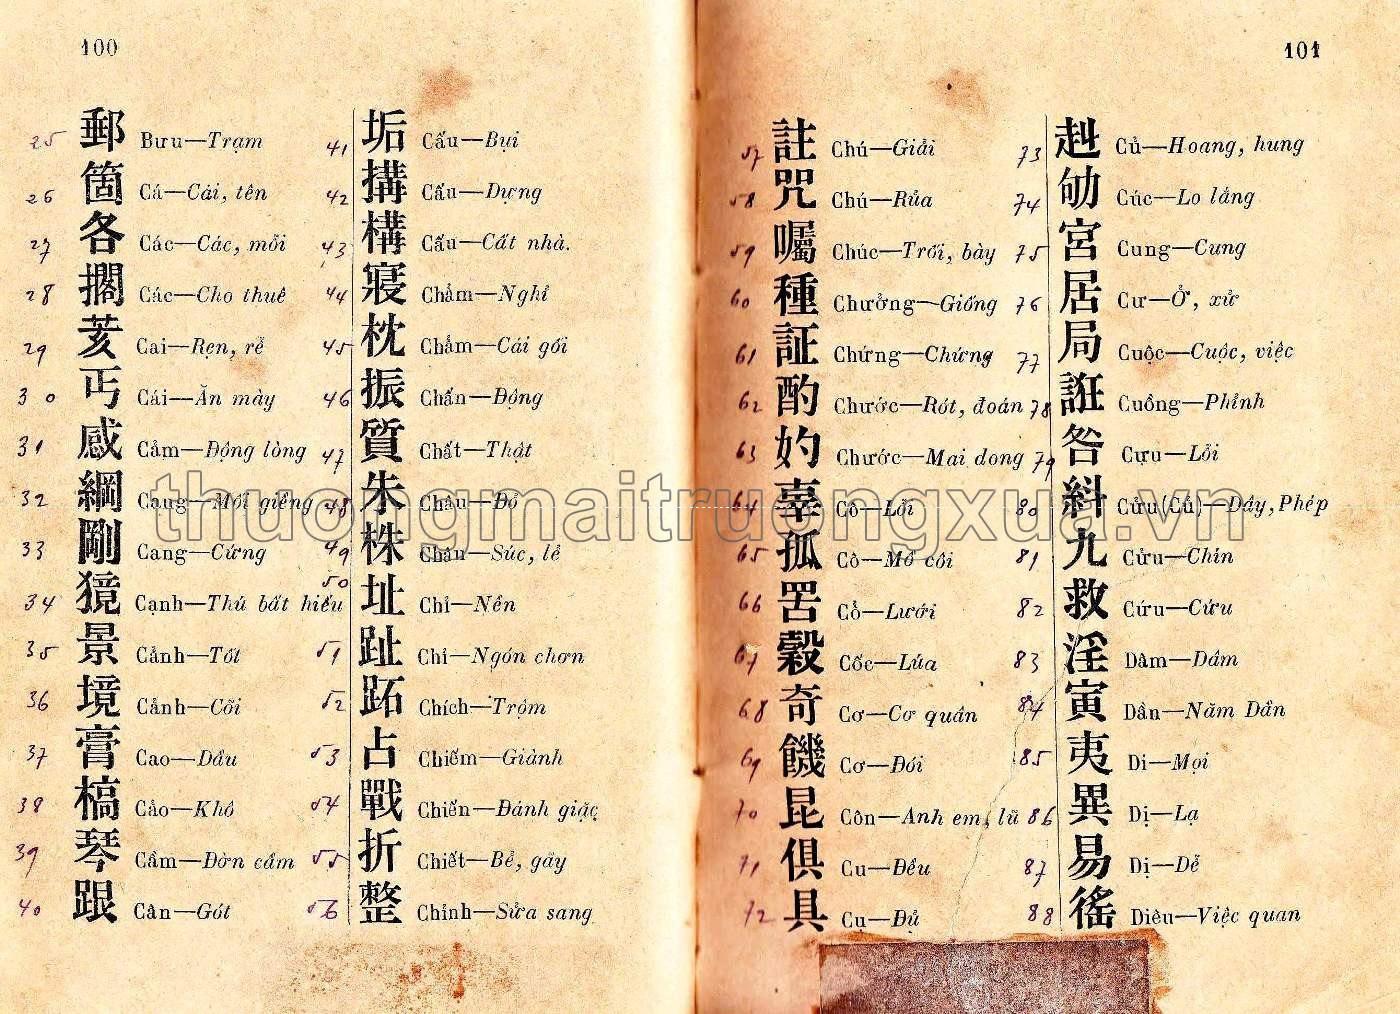 100
25 郵 Bưu—Trạm
26 箇 Cá—Cái, tên
27 各 Các—Các, mỗi
28 擱 Các—Cho thuê
29 荄 Cai—Rẹn, rễ
30 丐 Cái—Ăn mày
31 感 Cảm—Động lòng
32 綱 Cang—Mối giềng
33 剛 Cang—Cứng
34 獍 Cạnh—Thú bất hiếu
35 景 Cảnh—Tốt
36 境 Cảnh—Cõi
37 膏 Cao—Dầu
38 槁 Cảo—Khô
39 琴 Cầm—Đờn cầm
40 跟 Cân—Gót
41 垢 Cấu—Bụi
42 搆 Cấu—Dựng
43 構 Cấu—Cất nhà.
44 寢 Chẩm—Nghỉ
45 枕 Chẩm—Cái gối
46 振 Chấn—Động
47 質 Chất—Thật
48 朱 Châu—Đỏ
49 株 Châu—Súc, lẻ
50 址 Chỉ—Nền
51 趾 Chỉ—Ngón chơn
52 跖 Chích—Trộm
53 占 Chiếm—Giành
54 戰 Chiến—Đánh giặc
55 折 Chiết—Bẻ, gãy
56 整 Chỉnh—Sửa sang
101
57 註 Chú—Giải
58 咒 Chú—Rủa
59 囑 Chúc—Trối, bày
60 種 Chưởng—Giống
61 証 Chứng—Chứng
62 酌 Chước—Rót, đoán
63 妁 Chước—Mai dong
64 辜 Cô—Lỗi
65 孤 Cô—Mồ côi
66 罟 Cổ—Lưới
67 穀 Cốc—Lúa
68 奇 Cơ—Cơ quân
69 饑 Cơ—Đói
70 昆 Côn—Anh em, lũ
71 俱 Cu—Đều
72 具 Cụ—Đủ
73 赳 Củ—Hoang, hung
74 劬 Cúc—Lo lắng
75 宮 Cung—Cung
76 居 Cư—Ở, xử
77 局 Cuộc—Cuộc, việc
78 誑 Cuồng—Phỉnh
79 咎 Cựu—Lỗi
80 糾 Cửu(Củ)—Dây, Phép
81 九 Cửu—Chín
82 救 Cứu—Cứu
83 淫 Dâm—Dâm
84 寅 Dần—Năm Dần
85 夷 Di—Mọi
86 異 Dị—Lạ
87 易 Dị—Dễ
88 徭 Diêu—Việc quan
thuongmaitruongxua.vn